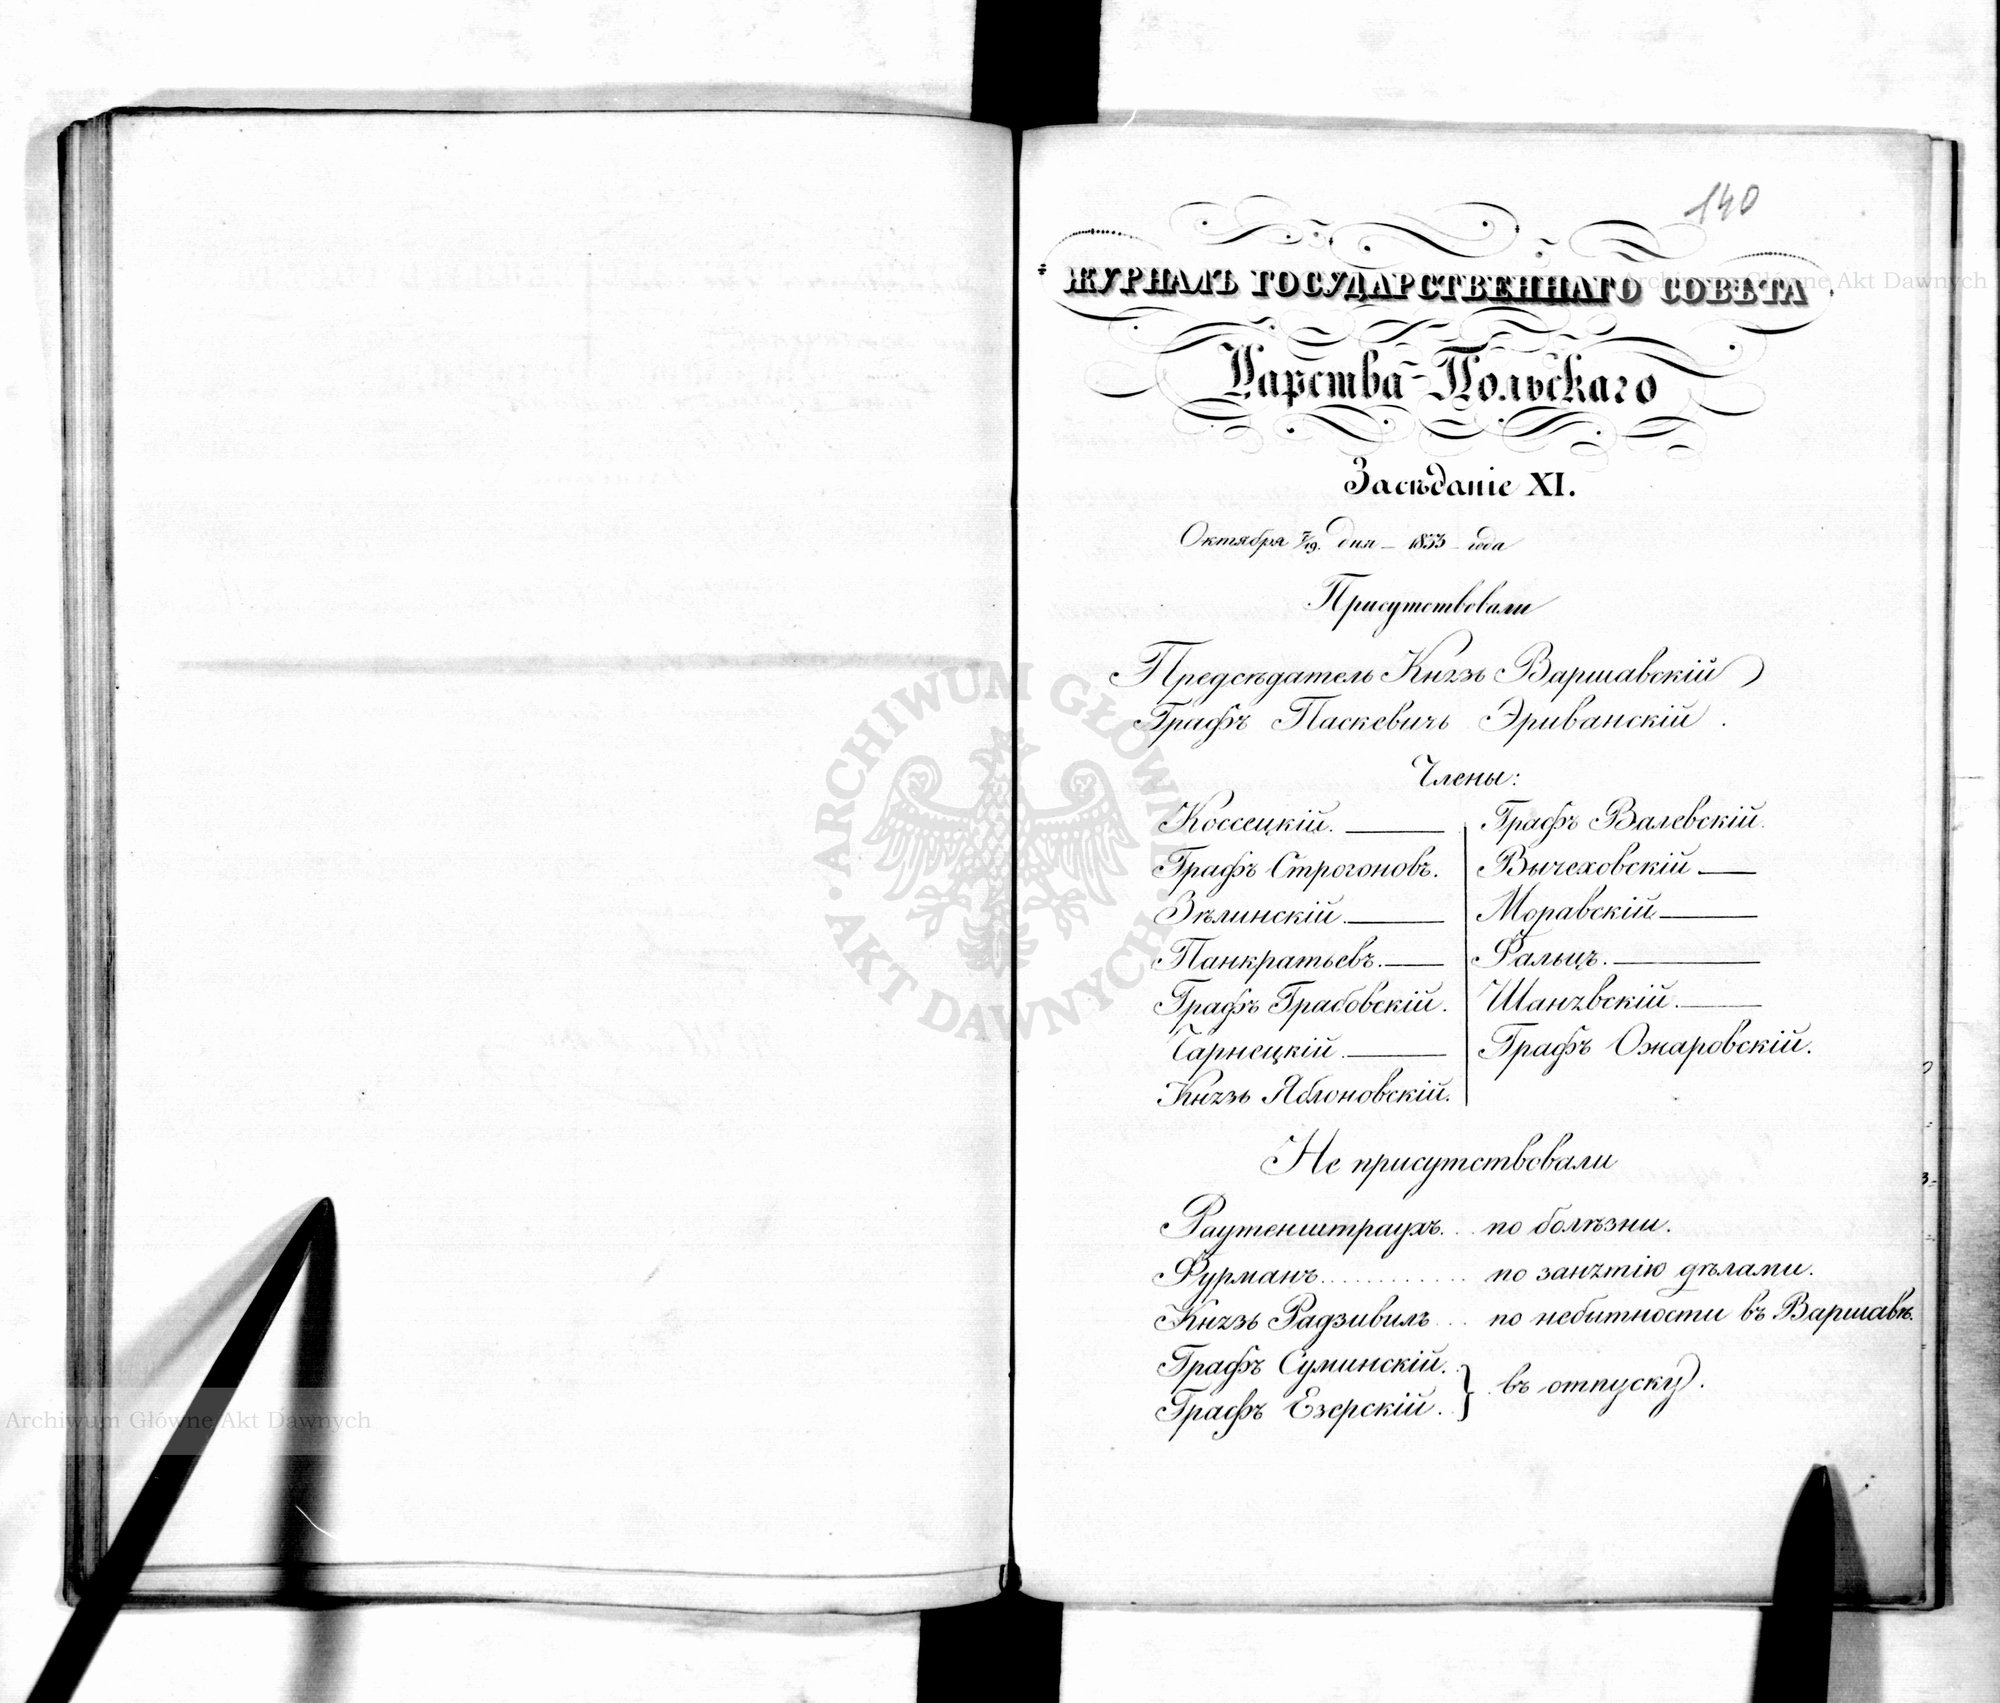 140
ЖУРНАЛЪ ГОСУДАРСТВЕННАГО СОВѢТА
Царства Польскаго
Засѣданіе XI.
Октября 7/19. дня – 1833 – года
Присутствовали
Предсѣдатель Князь Варшавскій
Графъ Паскевичъ Эриванскій.
Члены:
Коссецкій.
Графъ Строгоновъ.
Зѣлинскій.
Панкратьевъ.
Графъ Грабовскій.
Чарнецкій.
Князь Яблоновскій.
Графъ Валевскій.
Вычеховскій
Моравскій
Фальцъ.
Шанявскій.
Графъ Ожаровскій.
Не присутствовали
Раутенштраухъ... по болѣзни.
Фурманъ............ по занятію дѣлами.
Князь Радзивилъ... по небытности въ Варшавѣ.
Графъ Суминскій.
Графъ Езерскій. } въ отпуску.
Archiwum Główne Akt Dawnych
Archiwum Główne Akt Dawnych
ARCHIWUM GŁÓWNE AKT DAWNYCH